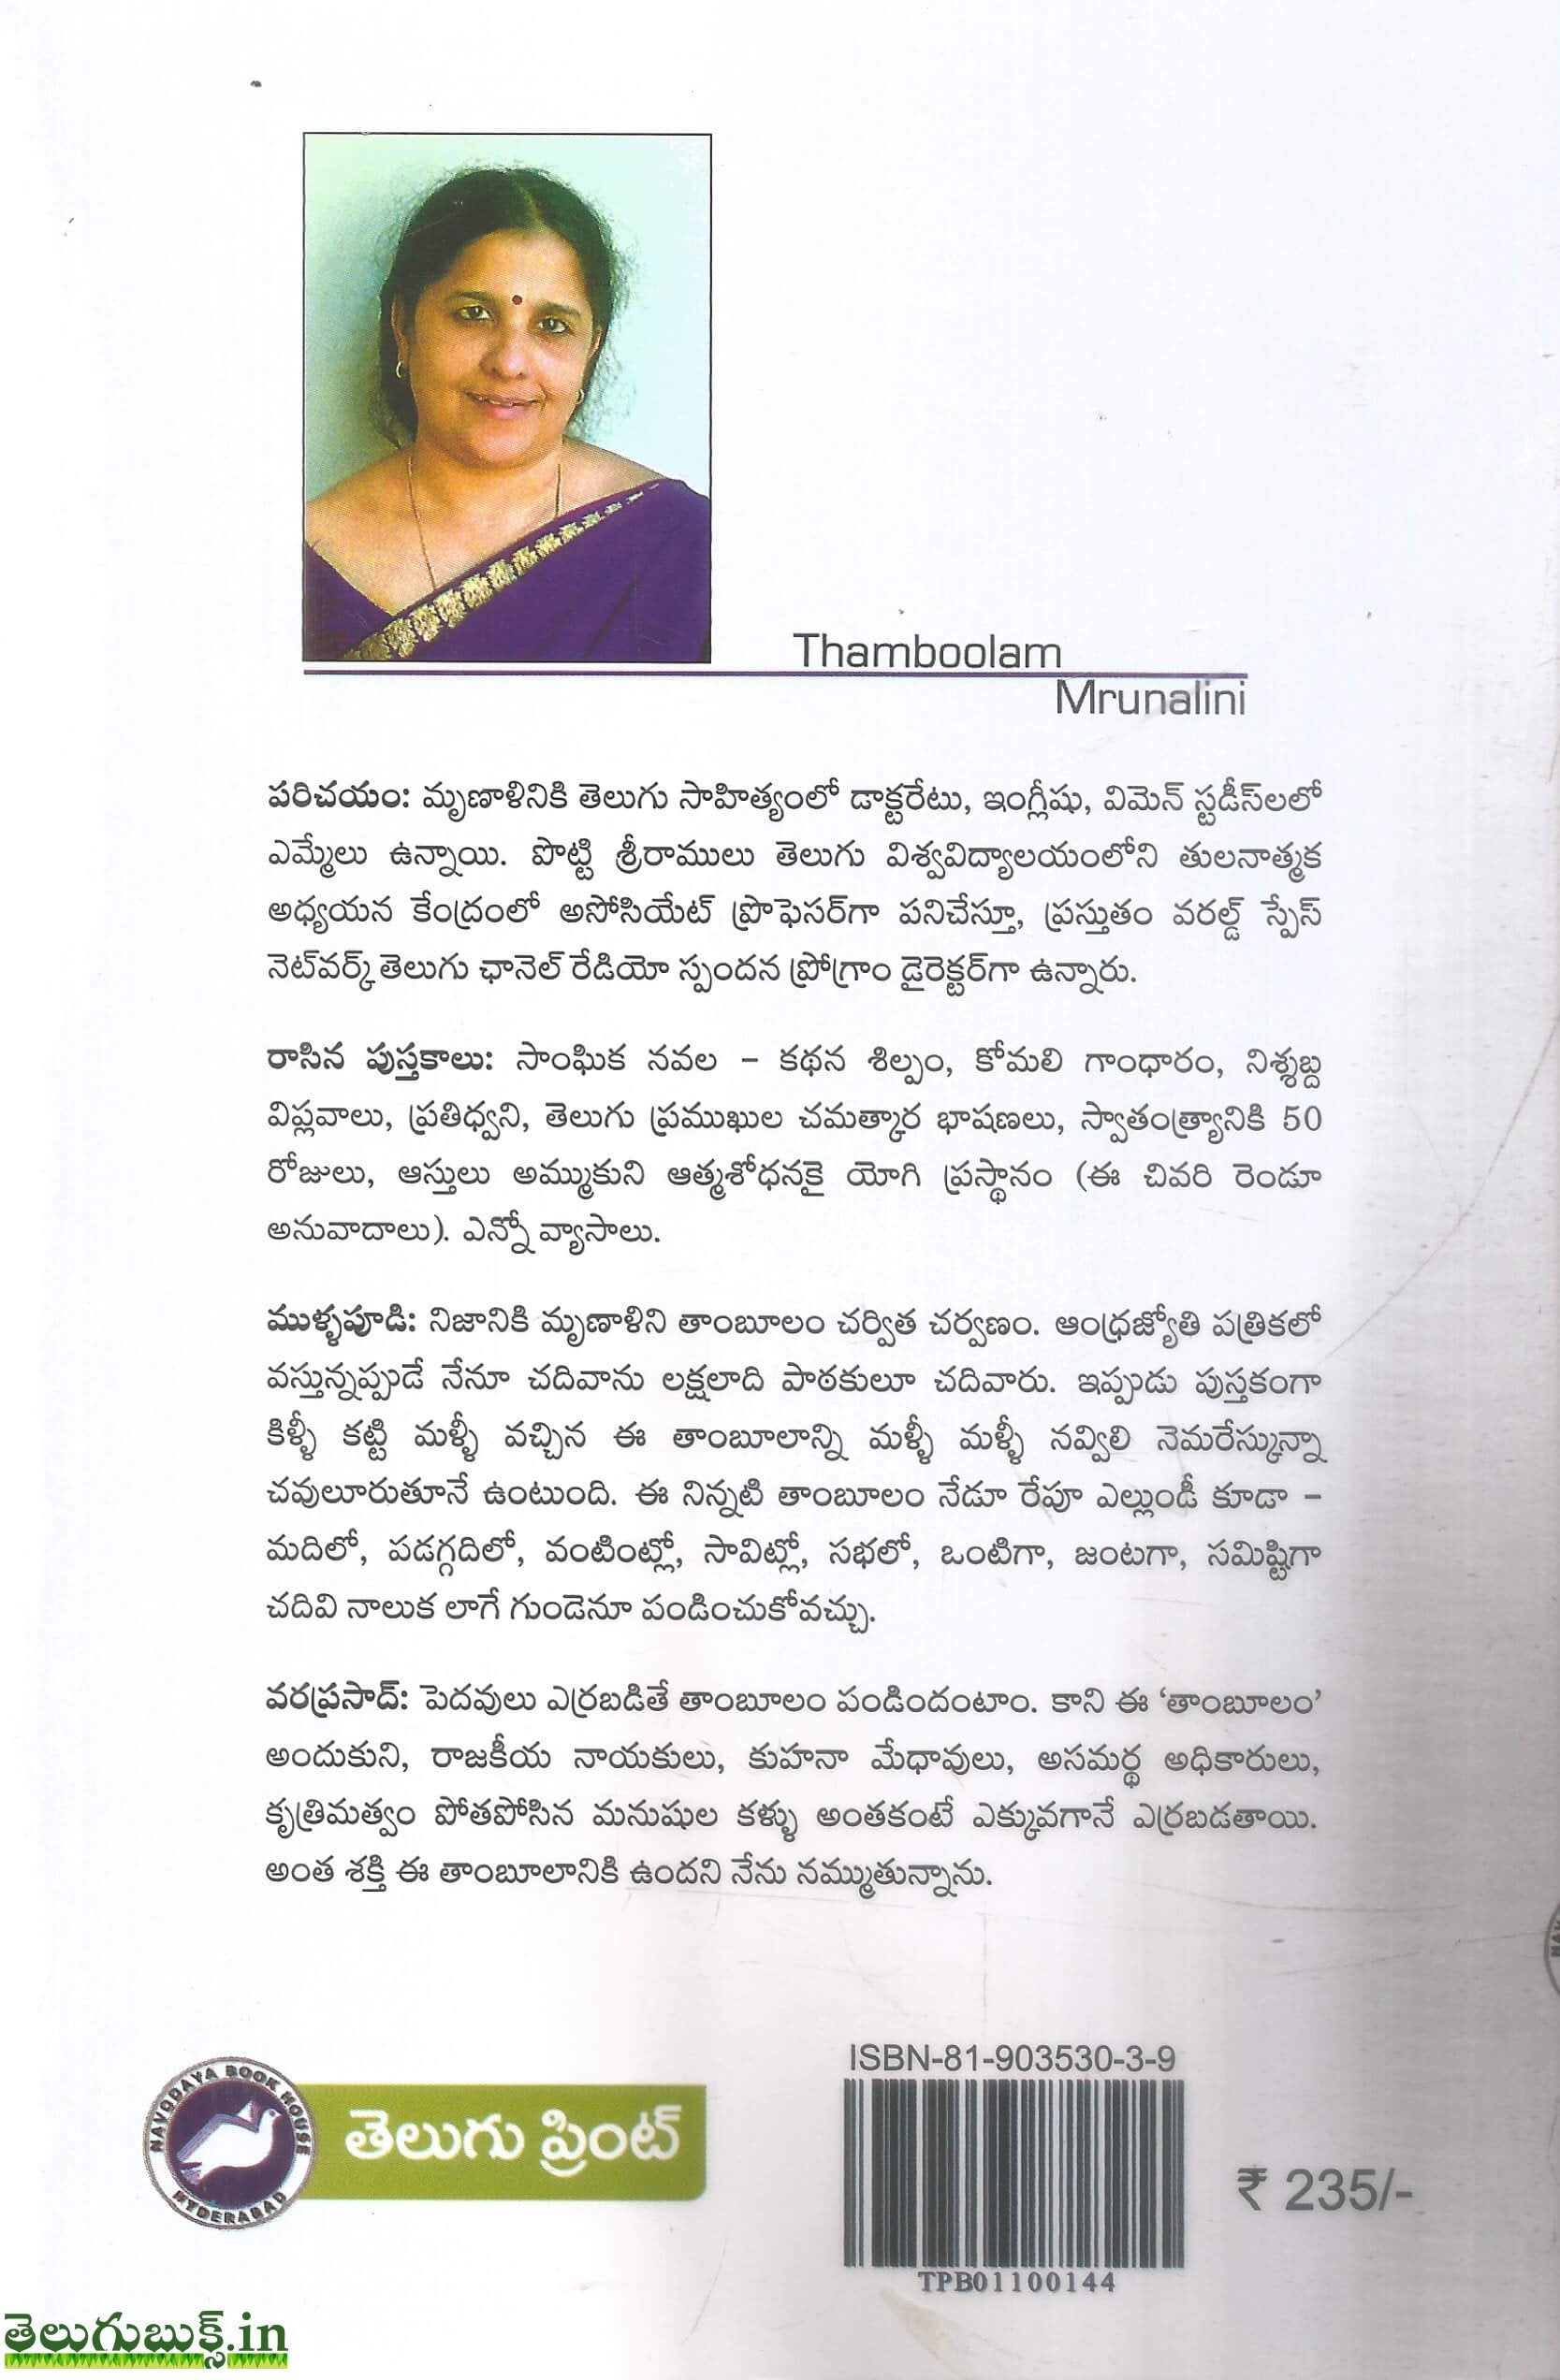 Thamboolam
Mrunalini
పరిచయం: మృణాళినికి తెలుగు సాహిత్యంలో డాక్టరేటు, ఇంగ్లీషు, విమెన్ స్టడీస్‌లలో
ఎమ్మేలు ఉన్నాయి. పొట్టి శ్రీరాములు తెలుగు విశ్వవిద్యాలయంలోని తులనాత్మక
అధ్యయన కేంద్రంలో అసోసియేట్ ప్రొఫెసర్‌గా పనిచేస్తూ, ప్రస్తుతం వరల్డ్ స్పేస్
నెట్‌వర్క్ తెలుగు ఛానెల్ రేడియో స్పందన ప్రోగ్రాం డైరెక్టర్‌గా ఉన్నారు.
రాసిన పుస్తకాలు: సాంఘిక నవల – కథన శిల్పం, కోమలి గాంధారం, నిశ్శబ్ద
విప్లవాలు, ప్రతిధ్వని, తెలుగు ప్రముఖుల చమత్కార భాషణలు, స్వాతంత్ర్యానికి 50
రోజులు, ఆస్తులు అమ్ముకుని ఆత్మశోధనకై యోగి ప్రస్థానం (ఈ చివరి రెండూ
అనువాదాలు). ఎన్నో వ్యాసాలు.
ముళ్ళపూడి: నిజానికి మృణాళిని తాంబూలం చర్విత చర్వణం. ఆంధ్రజ్యోతి పత్రికలో
వస్తున్నప్పుడే నేనూ చదివాను లక్షలాది పాఠకులూ చదివారు. ఇప్పుడు పుస్తకంగా
కిళ్ళీ కట్టి మళ్ళీ వచ్చిన ఈ తాంబూలాన్ని మళ్ళీ మళ్ళీ నవ్విలి నెమరేస్కున్నా
చవులూరుతూనే ఉంటుంది. ఈ నిన్నటి తాంబూలం నేడూ రేపూ ఎల్లుండీ కూడా –
మదిలో, పడగ్గదిలో, వంటింట్లో, సావిట్లో, సభలో, ఒంటిగా, జంటగా, సమిష్టిగా
చదివి నాలుక లాగే గుండెనూ పండించుకోవచ్చు.
వరప్రసాద్: పెదవులు ఎర్రబడితే తాంబూలం పండిందంటాం. కాని ఈ ‘తాంబూలం’
అందుకుని, రాజకీయ నాయకులు, కుహనా మేధావులు, అసమర్థ అధికారులు,
కృత్రిమత్వం పోతపోసిన మనుషుల కళ్ళు అంతకంటే ఎక్కువగానే ఎర్రబడతాయి.
అంత శక్తి ఈ తాంబూలానికి ఉందని నేను నమ్ముతున్నాను.
NAVODAYA BOOK HOUSE
HYDERABAD
తెలుగు ప్రింట్
ISBN-81-903530-3-9
TPB01100144
₹ 235/-
తెలుగుబుక్స్.in